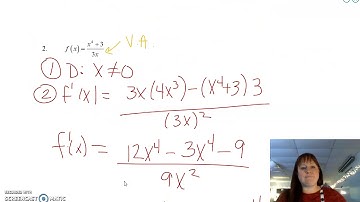 2. f(x) = (x⁴ + 3)/(3x) V.A.
① D: x ≠ 0
② f'(x) = (3x(4x³) - (x⁴+3)3)/(3x)²
f'(x) = (12x⁴ - 3x⁴ - 9)/(9x²)
RECORDED WITH
SCREENCAST-O-MATIC